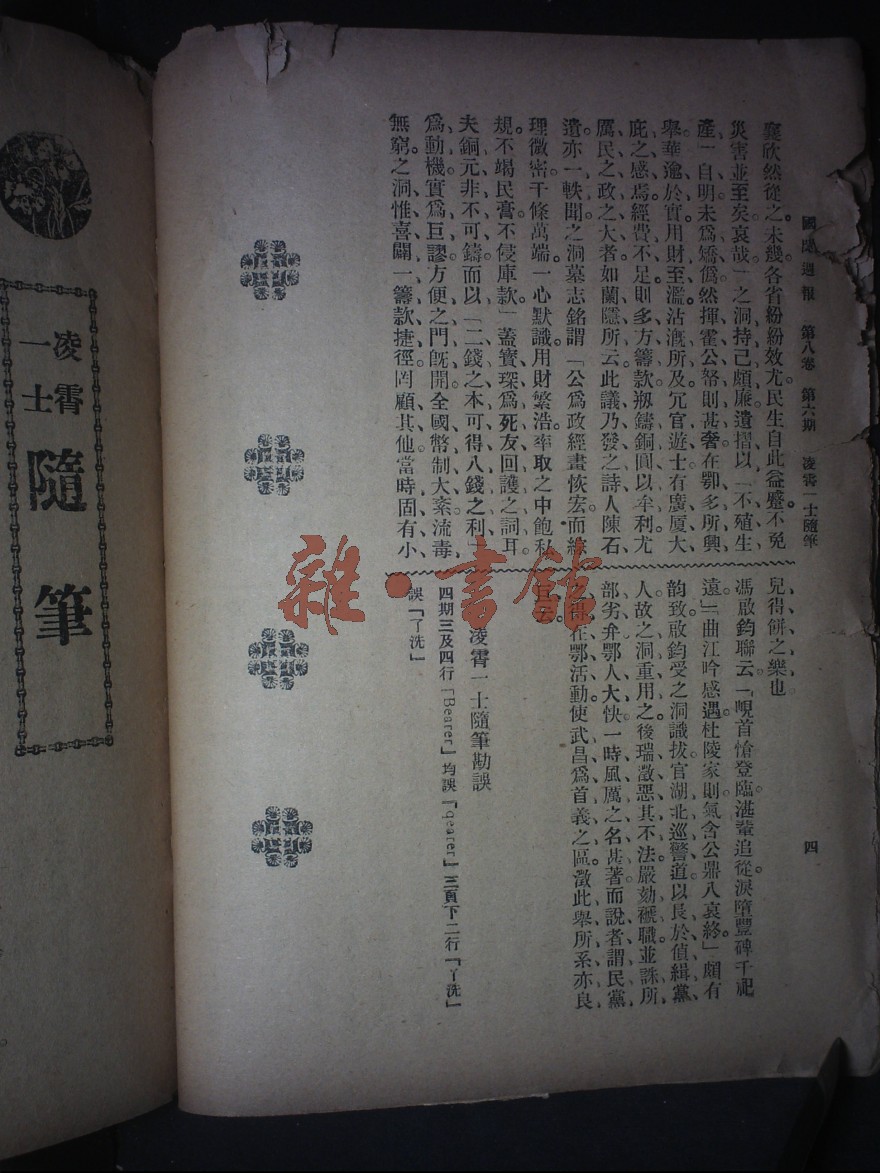 國聞週報　第八卷　第六期　凌霄一士隨筆
四
襄欣然從之。未幾各省紛紛效尤。民生自此益蹙。不免
災害並至矣。哀哉。」之洞持己頗廉。遺摺以「不殖生
產」自明。未爲矯僞。然揮霍公帑則甚奢。在鄂多所興
舉。華逾於實。用財至濫。沾漑所及。冗官遊士有廣厦大
庇之感焉。經費不足。則多方籌款。剏鑄銅圓以牟利。尤
厲民之政之大者。如蘭隱所云。此議乃發之詩人陳石
遺。亦一軼聞。之洞墓志銘謂「公爲政經畫恢宏。而綜
理微密。千條萬端。一心默識。用財繁浩。率取之中飽私
規。不竭民膏。不侵庫款」蓋寶琛爲死友回護之詞耳。
夫銅元非不可鑄。而以「二錢之本可得八錢之利」
爲動機。實爲巨謬。方便之門旣開。全國幣制大紊。流毒
無窮。之洞惟喜闢一籌款捷徑。罔顧其他。當時固有小
兒得餅之樂也。
馮啟鈞聯云。「峴首愴登臨。湛輩追從。淚墮豐碑千祀
遠。」「曲江吟感遇。杜陵家則。氣含公鼎八哀終」頗有
韵致。啟鈞受之洞識拔。官湖北巡警道。以長於偵緝黨
人。故之洞重用之。後瑞澂惡其不法。嚴劾褫職。並誅所
部劣弁。鄂人大快。一時風厲之名甚著。而說者謂民黨
之得在鄂活動。使武昌爲首義之區。澂此舉所系亦良
巨云。
凌霄一士隨筆勘誤
四期三及四行「Bearer」均誤「qearer」三頁下二行「丫洗」
誤「了洗」
凌霄
一士
隨筆
雜·書館